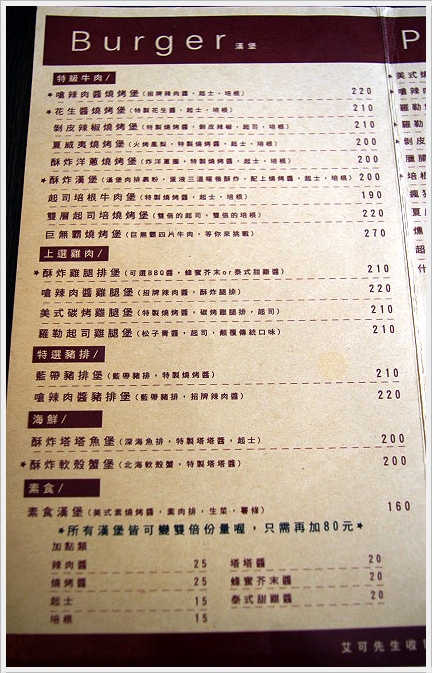 Burger 漢堡
P
特級牛肉/
★嗆辣肉醬燒烤堡(招牌辣肉醬，起士，培根) 220
★花生醬燒烤堡(特製花生醬，起士，培根) 210
剝皮辣椒燒烤堡(特製燒烤醬，剝皮辣椒，起司，培根) 210
夏威夷燒烤堡(火烤鳳梨，特製燒烤醬，起士，培根) 200
酥炸洋蔥燒烤堡(炸洋蔥圈，特製燒烤醬，起士，培根) 200
★酥炸漢堡(漢堡肉排裹粉，蛋液三溫暖後酥炸，配上燒烤醬，起士，培根) 200
起司培根牛肉堡(特製燒烤醬，起士，培根) 190
雙層起司培燒烤堡(雙倍的起司，雙倍的培根) 220
巨無霸燒烤堡(巨無霸四片牛肉，等你來挑戰) 270
上選雞肉/
★酥炸雞腿排堡(可選BBQ醬，蜂蜜芥末or泰式甜雞醬) 210
嗆辣肉醬雞腿堡(招牌辣肉醬，酥炸腿排) 220
美式碳烤雞腿堡(特製燒烤醬，碳烤雞腿排，起司) 210
羅勒起司雞腿堡(松子青醬，起司，顛覆傳統口味) 210
特選豬排/
藍帶豬排堡(藍帶豬排，特製燒烤醬) 210
嗆辣肉醬豬排堡(藍帶豬排，招牌辣肉醬) 220
海鮮/
酥炸塔塔魚堡(深海魚排，特製塔塔醬，起士) 200
★酥炸軟殼蟹堡(北海軟殼蟹，特製塔塔醬) 200
素食/
素食漢堡(美式素燒烤醬，素肉排，生菜，薯條) 160
★所有漢堡皆可變雙倍份量喔，只需再加80元★
加點類
辣肉醬 25 塔塔醬 20
燒烤醬 25 蜂蜜芥末醬 20
起士 15 泰式甜雞醬 20
培根 15
艾可先生收